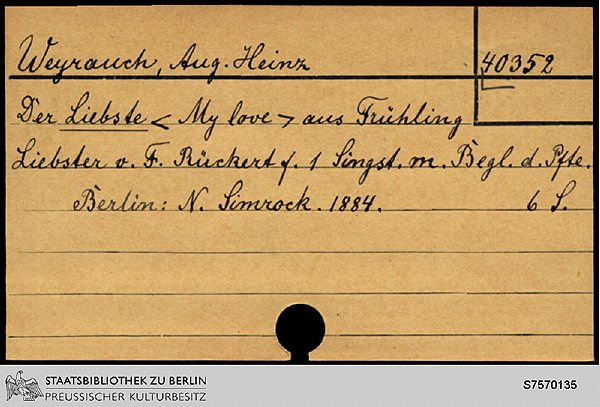 Weyrauch, Aug. Heinz
40352
Der Liebste < My love > aus Frühling
Liebster v. F. Rückert f. 1 Singst. m. Begl. d. Pfte.
Berlin: N. Simrock. 1884. 6 S.
STAATSBIBLIOTHEK ZU BERLIN
PREUSSISCHER KULTURBESITZ
S7570135